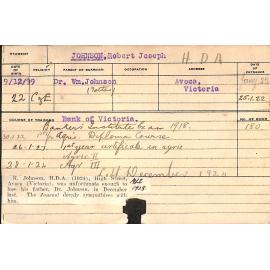 STUDENT
JOHNSON, Robert Joseph H.D.A
DATE OF BIRTH RELIGION PARENT OR GUARDIAN OCCUPATION ADDRESS DATE OF ENTRANCE
9/12/99 Dr. Wm. Johnson Avoca, Victoria
22 C of E (Father) 25.1.22
Bank of Victoria. 180
Bankers Institute Exam 1918.
30.1.22 Agric. Diploma Course
26-1-23 1st year certificate in agric
Agric II
28-1-24 Agr III
Left December 1924
R. Johnson, H.D.A. (1924), High Street,
Avoca (Victoria), was unfortunate enough to
lose his father, Dr. Johnson, in December
last. The Journal deeply sympathises with
him.
1928